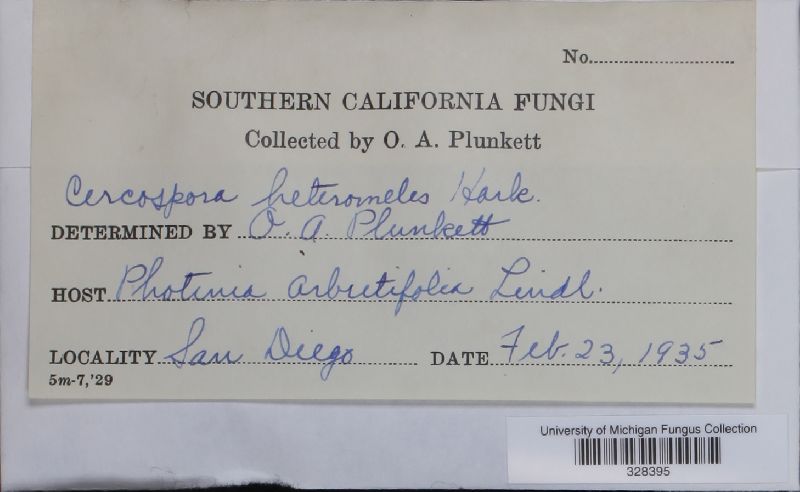 No.
SOUTHERN CALIFORNIA FUNGI
Collected by O. A. Plunkett
Cercospora heteromeles Hark.
DETERMINED BY O. A. Plunkett
HOST Photinia arbutifolia Lindl.
LOCALITY San Diego DATE Feb. 23, 1935
5m-7,'29
University of Michigan Fungus Collection
328395